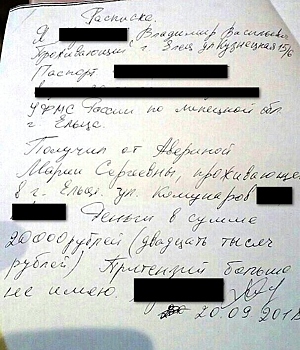 Расписка.
Я Владимир Васильевич
Проживающий г Елец ул Кузнецкая 15/6
Паспорт
УФМС России по Липецкой обл
г Ельце.
Получил от Авериной
Марии Сергеевны, проживающей
в г. Ельце. ул. Комунаров
Деньги в сумме
20000 рублей (двадцать тысяч
рублей) Притензий больше
не имею.
20.09 201